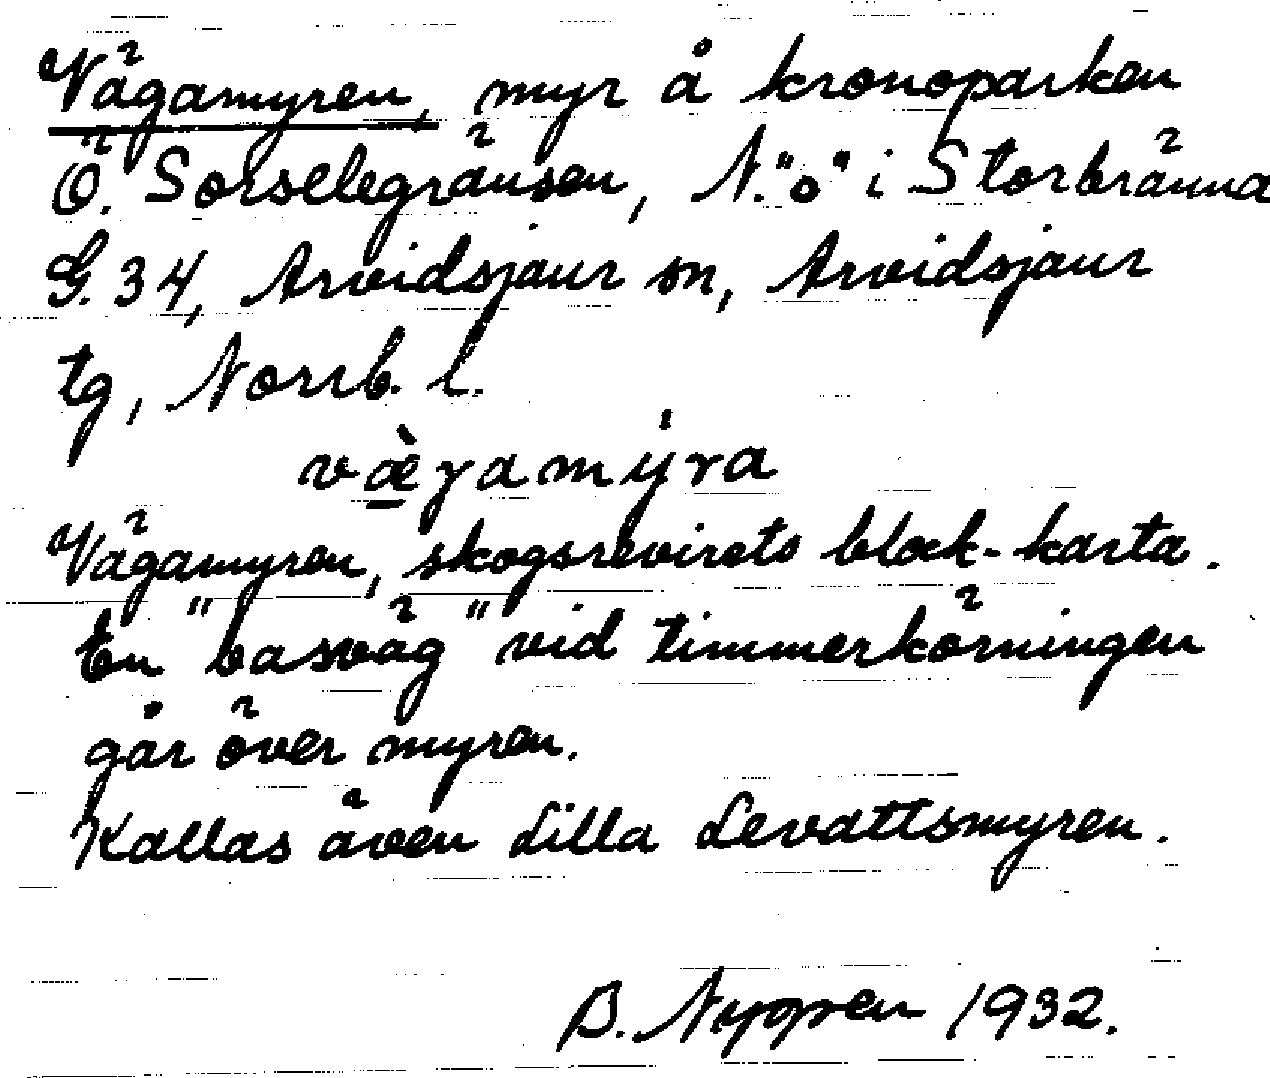 Vägamyren, myr å kronoparken
Ö. Sorselegränsen, N. "o" i Storbränna
G. 34, Arvidsjaur sn, Arvidsjaur
tg, Norrb. l.
væ̀γamýra
Vägamyren, skogsrevirets block-karta.
En "basväg" vid timmerkörningen
går över myren.
Kallas även Lilla Levattsmyren.
B. Nyppen 1932.